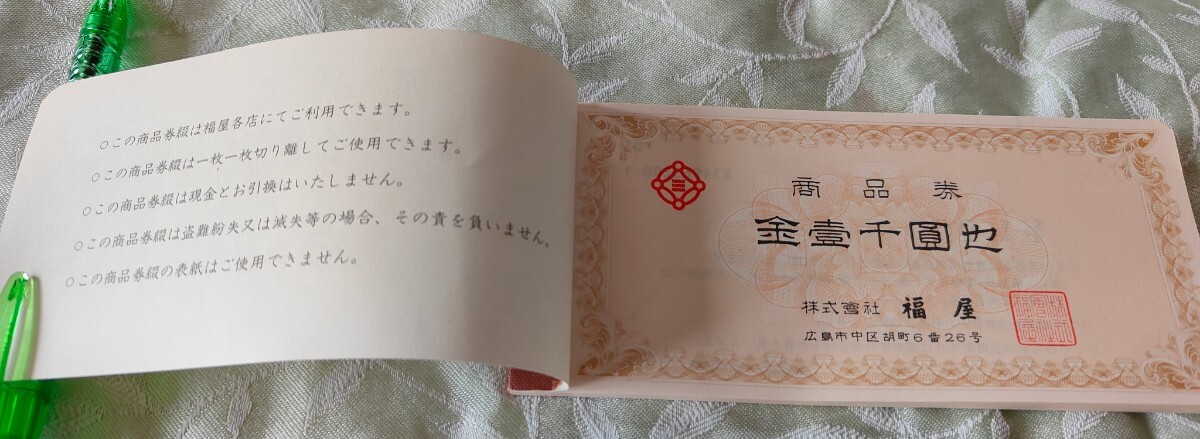 ○この商品券綴は福屋各店にてご利用できます。
○この商品券綴は一枚一枚切り離してご使用できます。
○この商品券綴は現金とお引換はいたしません。
○この商品券綴は盗難紛失又は滅失等の場合、その責を負いません。
○この商品券綴の表紙はご使用できません。
商品券
金壹千圓也
株式會社 福屋
広島市中区胡町6番26号
株式會社福屋